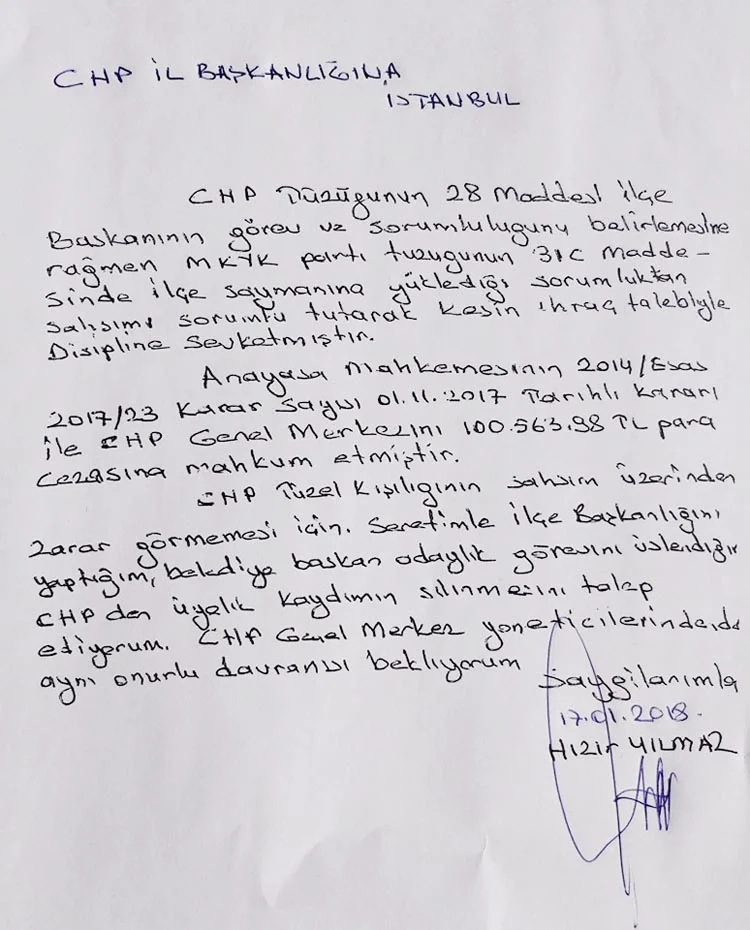 CHP İL BAŞKANLIĞINA
İSTANBUL
CHP Tüzüğünun 28 Maddesi ilçe
Başkanının görev ve sorumluluğunu belirlemesine
rağmen MKYK partı tüzügünun 31C madde-
sinde ilçe saymanına yüklediğı sorumluktan
şahsımı sorumlu tutarak kesin ihraç talebiyle
Disipline Sevketmiştir.
Anayasa mahkemesının 2014/Esas
2017/23 Karar Sayısı 01.11.2017 Tarıhlı Kararı
ile CHP Genel Merkezını 100.563.98 TL para
Cezasına mahkum etmiştir.
CHP Tüzel Kışılığının şahsım üzerinden
Zarar görmemesi için. Şerefimle ilçe Başkanlığını
yaptığım, belediye başkan adaylık görevını üslendığım
CHP den üyelik kaydımın silinmesını talep
ediyorum. CHP Genel Merkez yoneticilerindende
aynı onurlu davranışı beklıyorum
Saygılarımla
17.01.2018.
Hızır YILMAZ